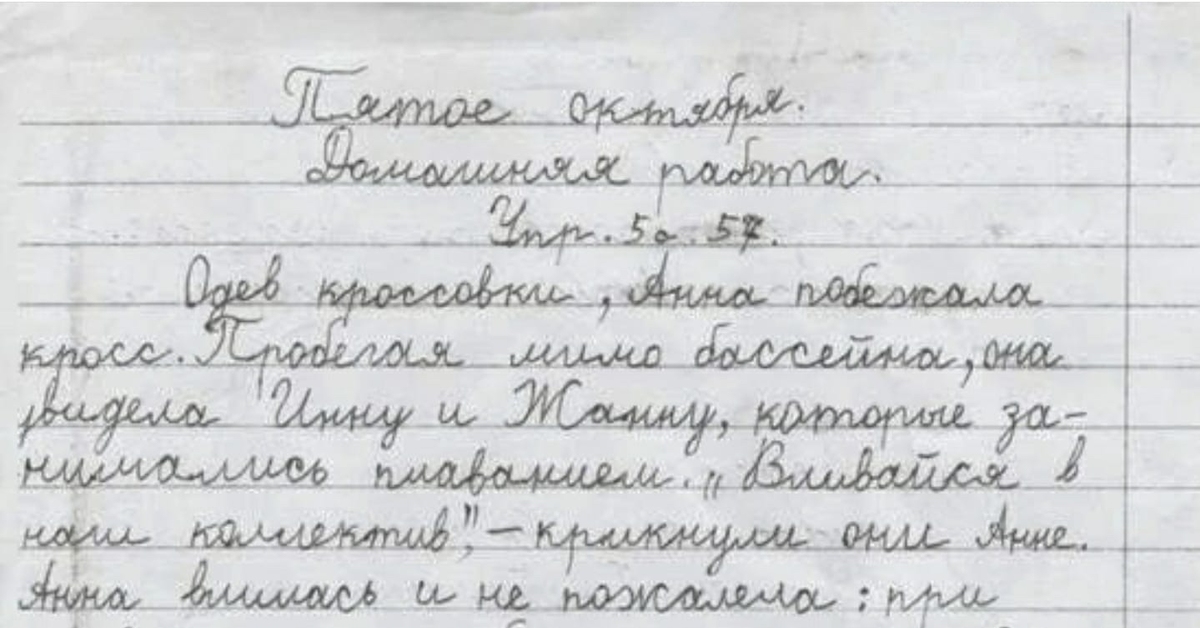 Пятое октября.
Домашняя работа.
Упр. 5 с. 57.
Одев кроссовки, Анна побежала
кросс. Пробегая мимо бассейна, она
увидела Инну и Жанну, которые за-
нимались плаванием. „Вливайся в
наш коллектив", – крикнули они Анне.
Анна влилась и не пожалела: при